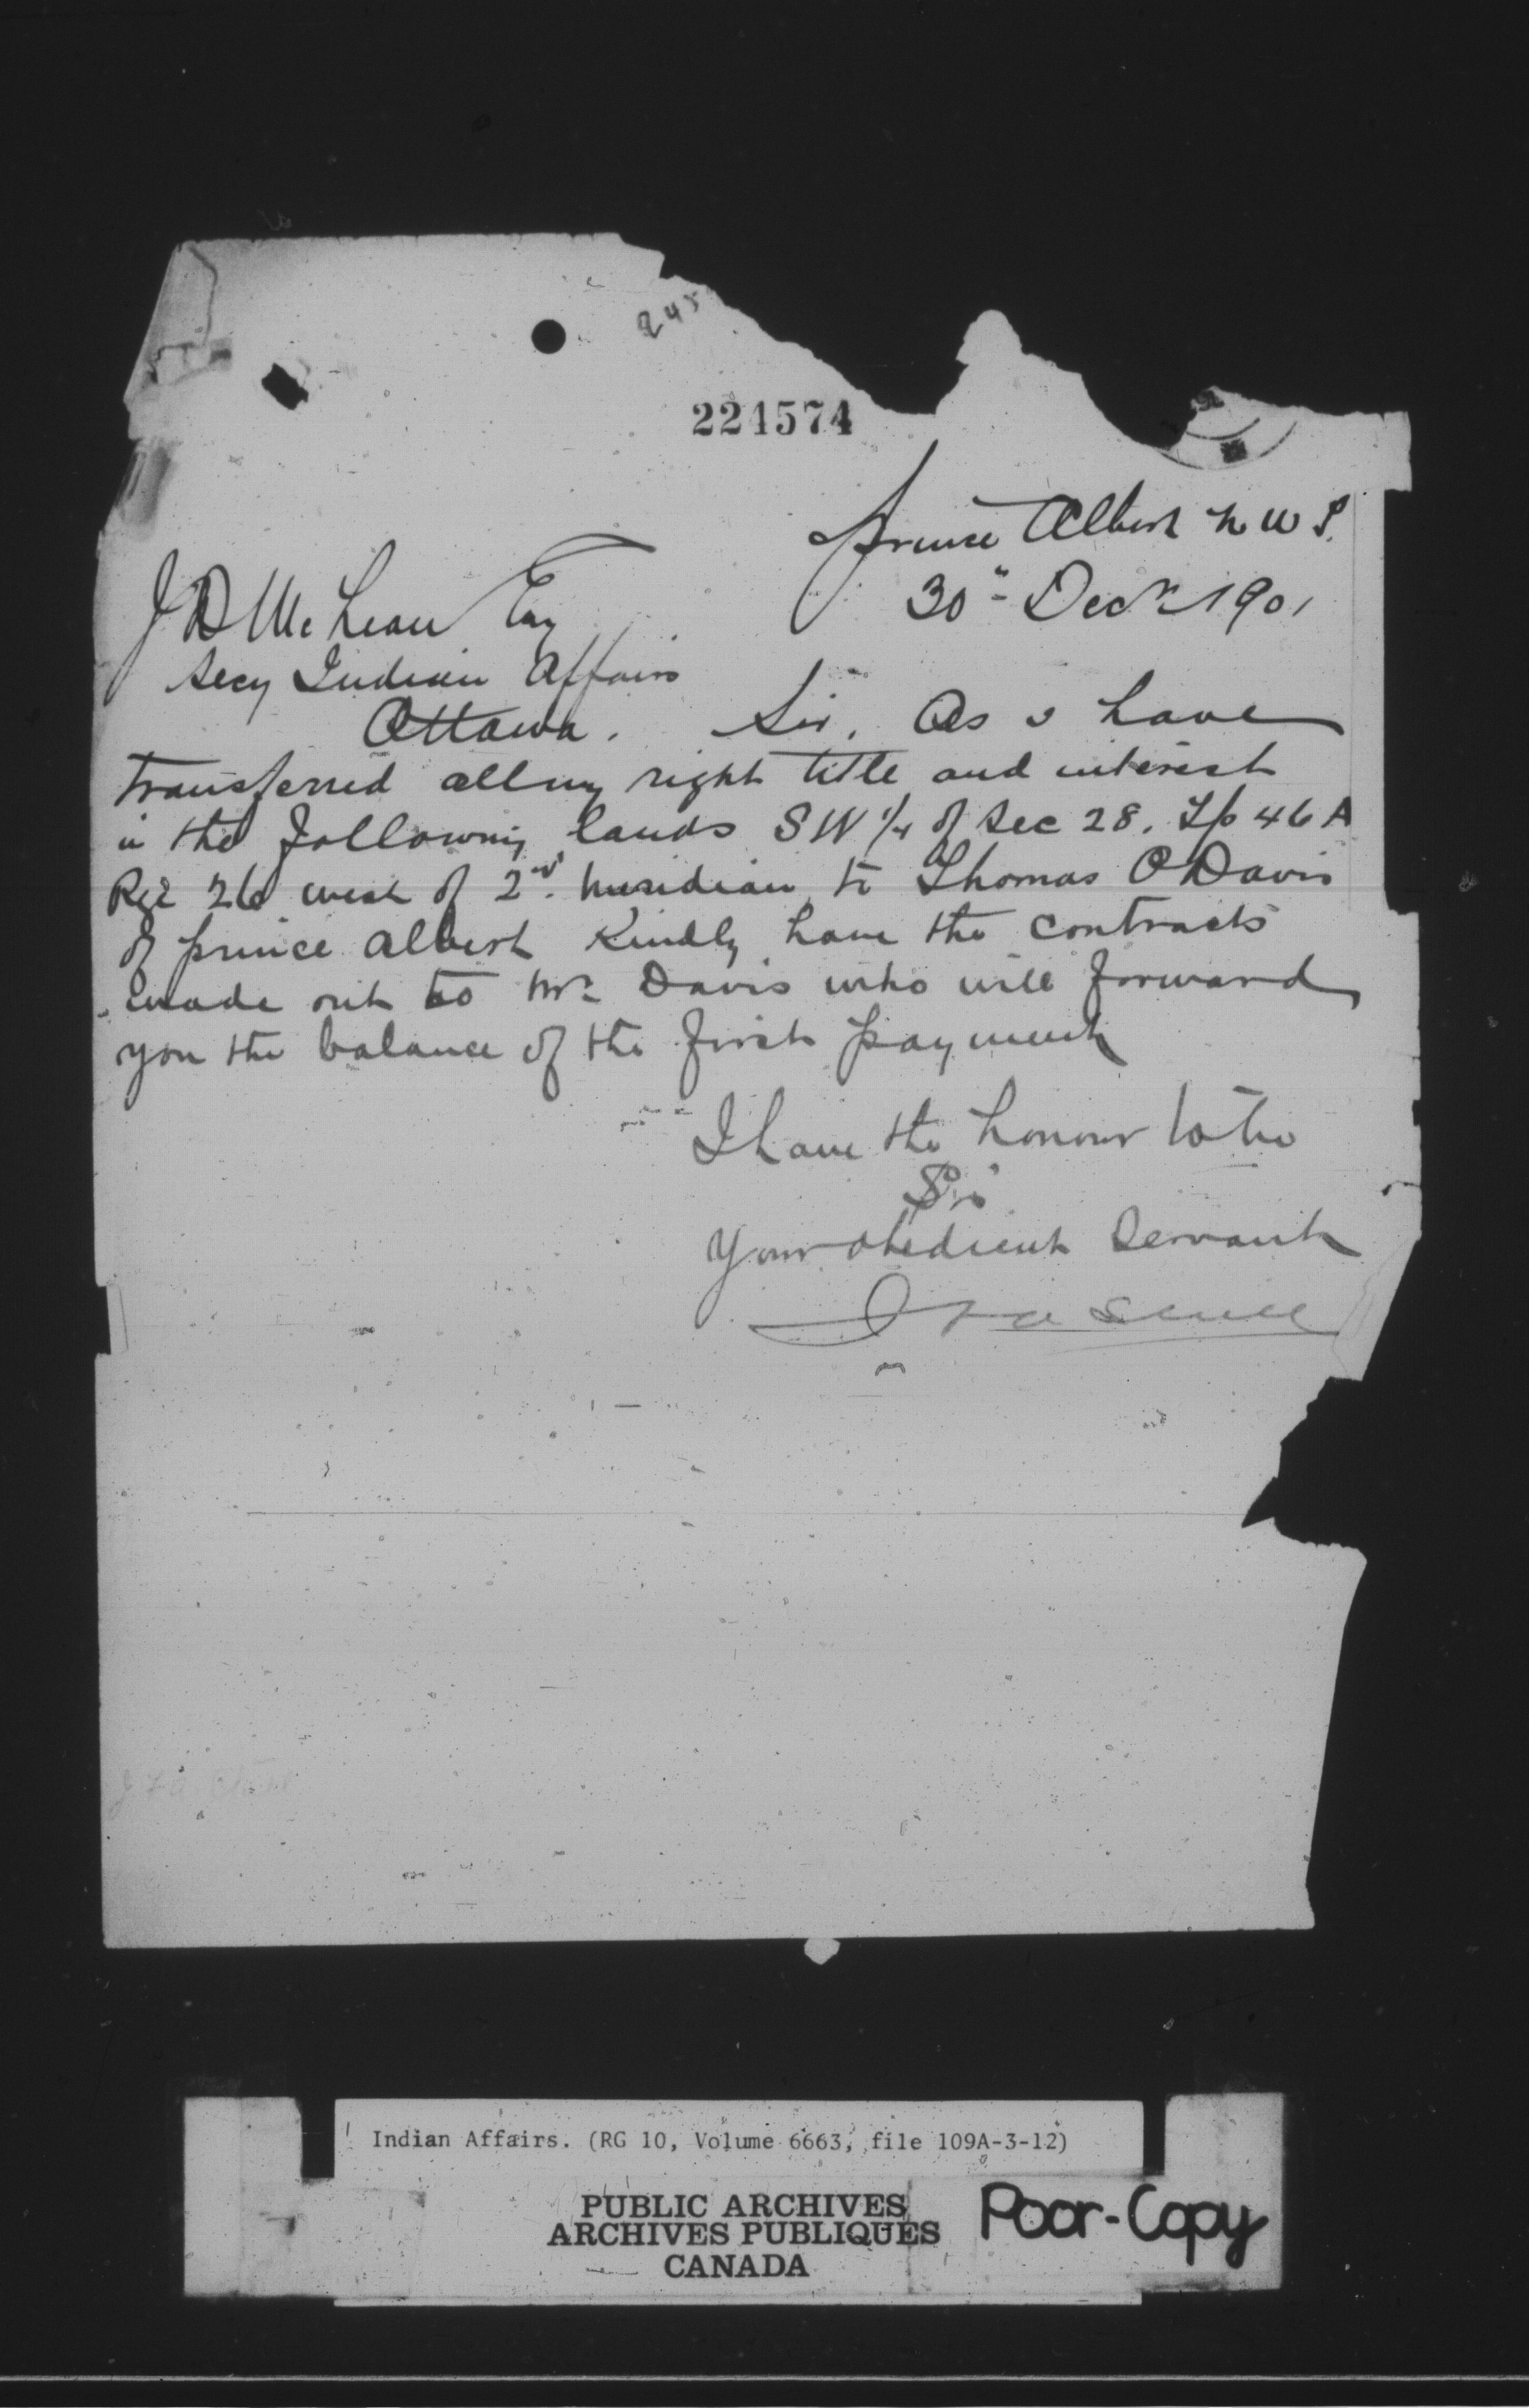 245
224574
Prince Albert N W T.
30" - Decr 1901
J D McLean Esq
Secy Indian Affairs
Ottawa. Sir. As I have
transferred all my right title and interest
in the following lands SW 1/4 of Sec 28. Tp 46 A
Rge 26 west of 2nd. Meridian to Thomas O Davis
of prince albert Kindly have the contracts
made out to Mr Davis who will forward
you the balance of the first payment
I have the honour to be
Sir
Your obedient Servant
Indian Affairs. (RG 10, Volume 6663, file 109A-3-12)
PUBLIC ARCHIVES
ARCHIVES PUBLIQUES
CANADA
Poor-Copy